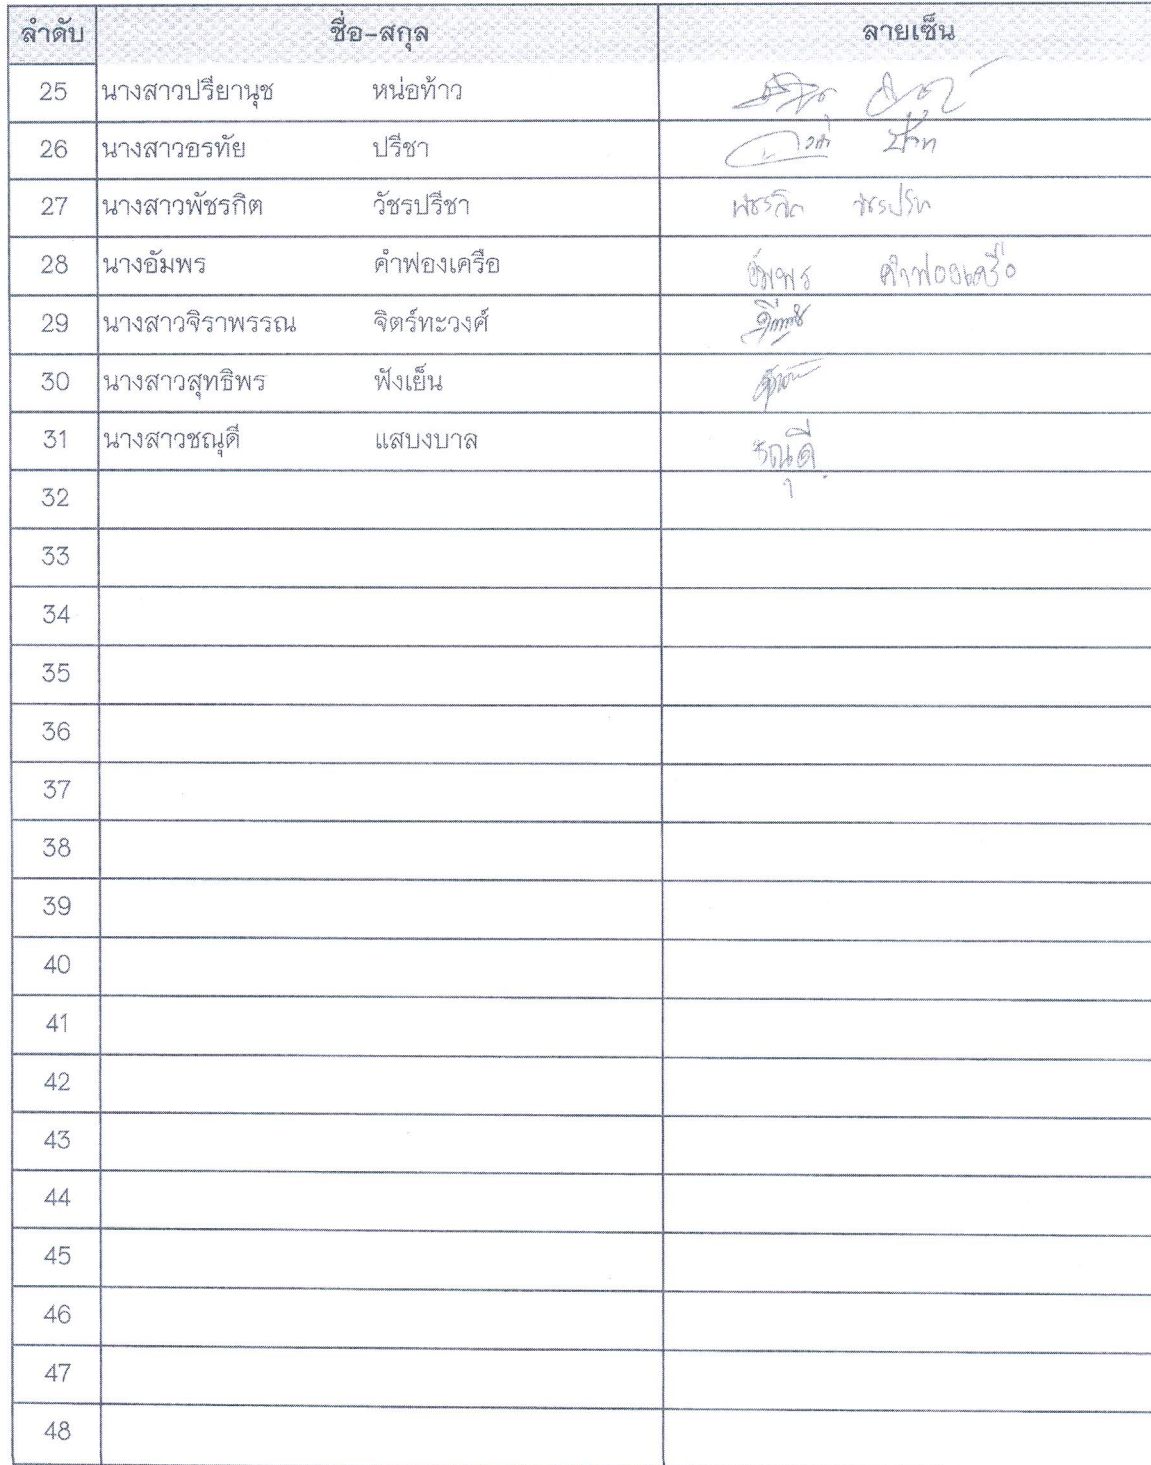 ลำดับ ชื่อ-สกุล ลายเซ็น
25 นางสาวปรียานุช หน่อท้าว
26 นางสาวอรทัย ปรีชา
27 นางสาวพัชรกิต วัชรปรีชา พัชรกิต วัชรปรีชา
28 นางอัมพร คำฟองเครือ อัมพร คำฟองเครือ
29 นางสาวจิราพรรณ จิตร์ทะวงศ์
30 นางสาวสุทธิพร ฟังเย็น
31 นางสาวชณุดี แสบงบาล ชณุดี
32
33
34
35
36
37
38
39
40
41
42
43
44
45
46
47
48